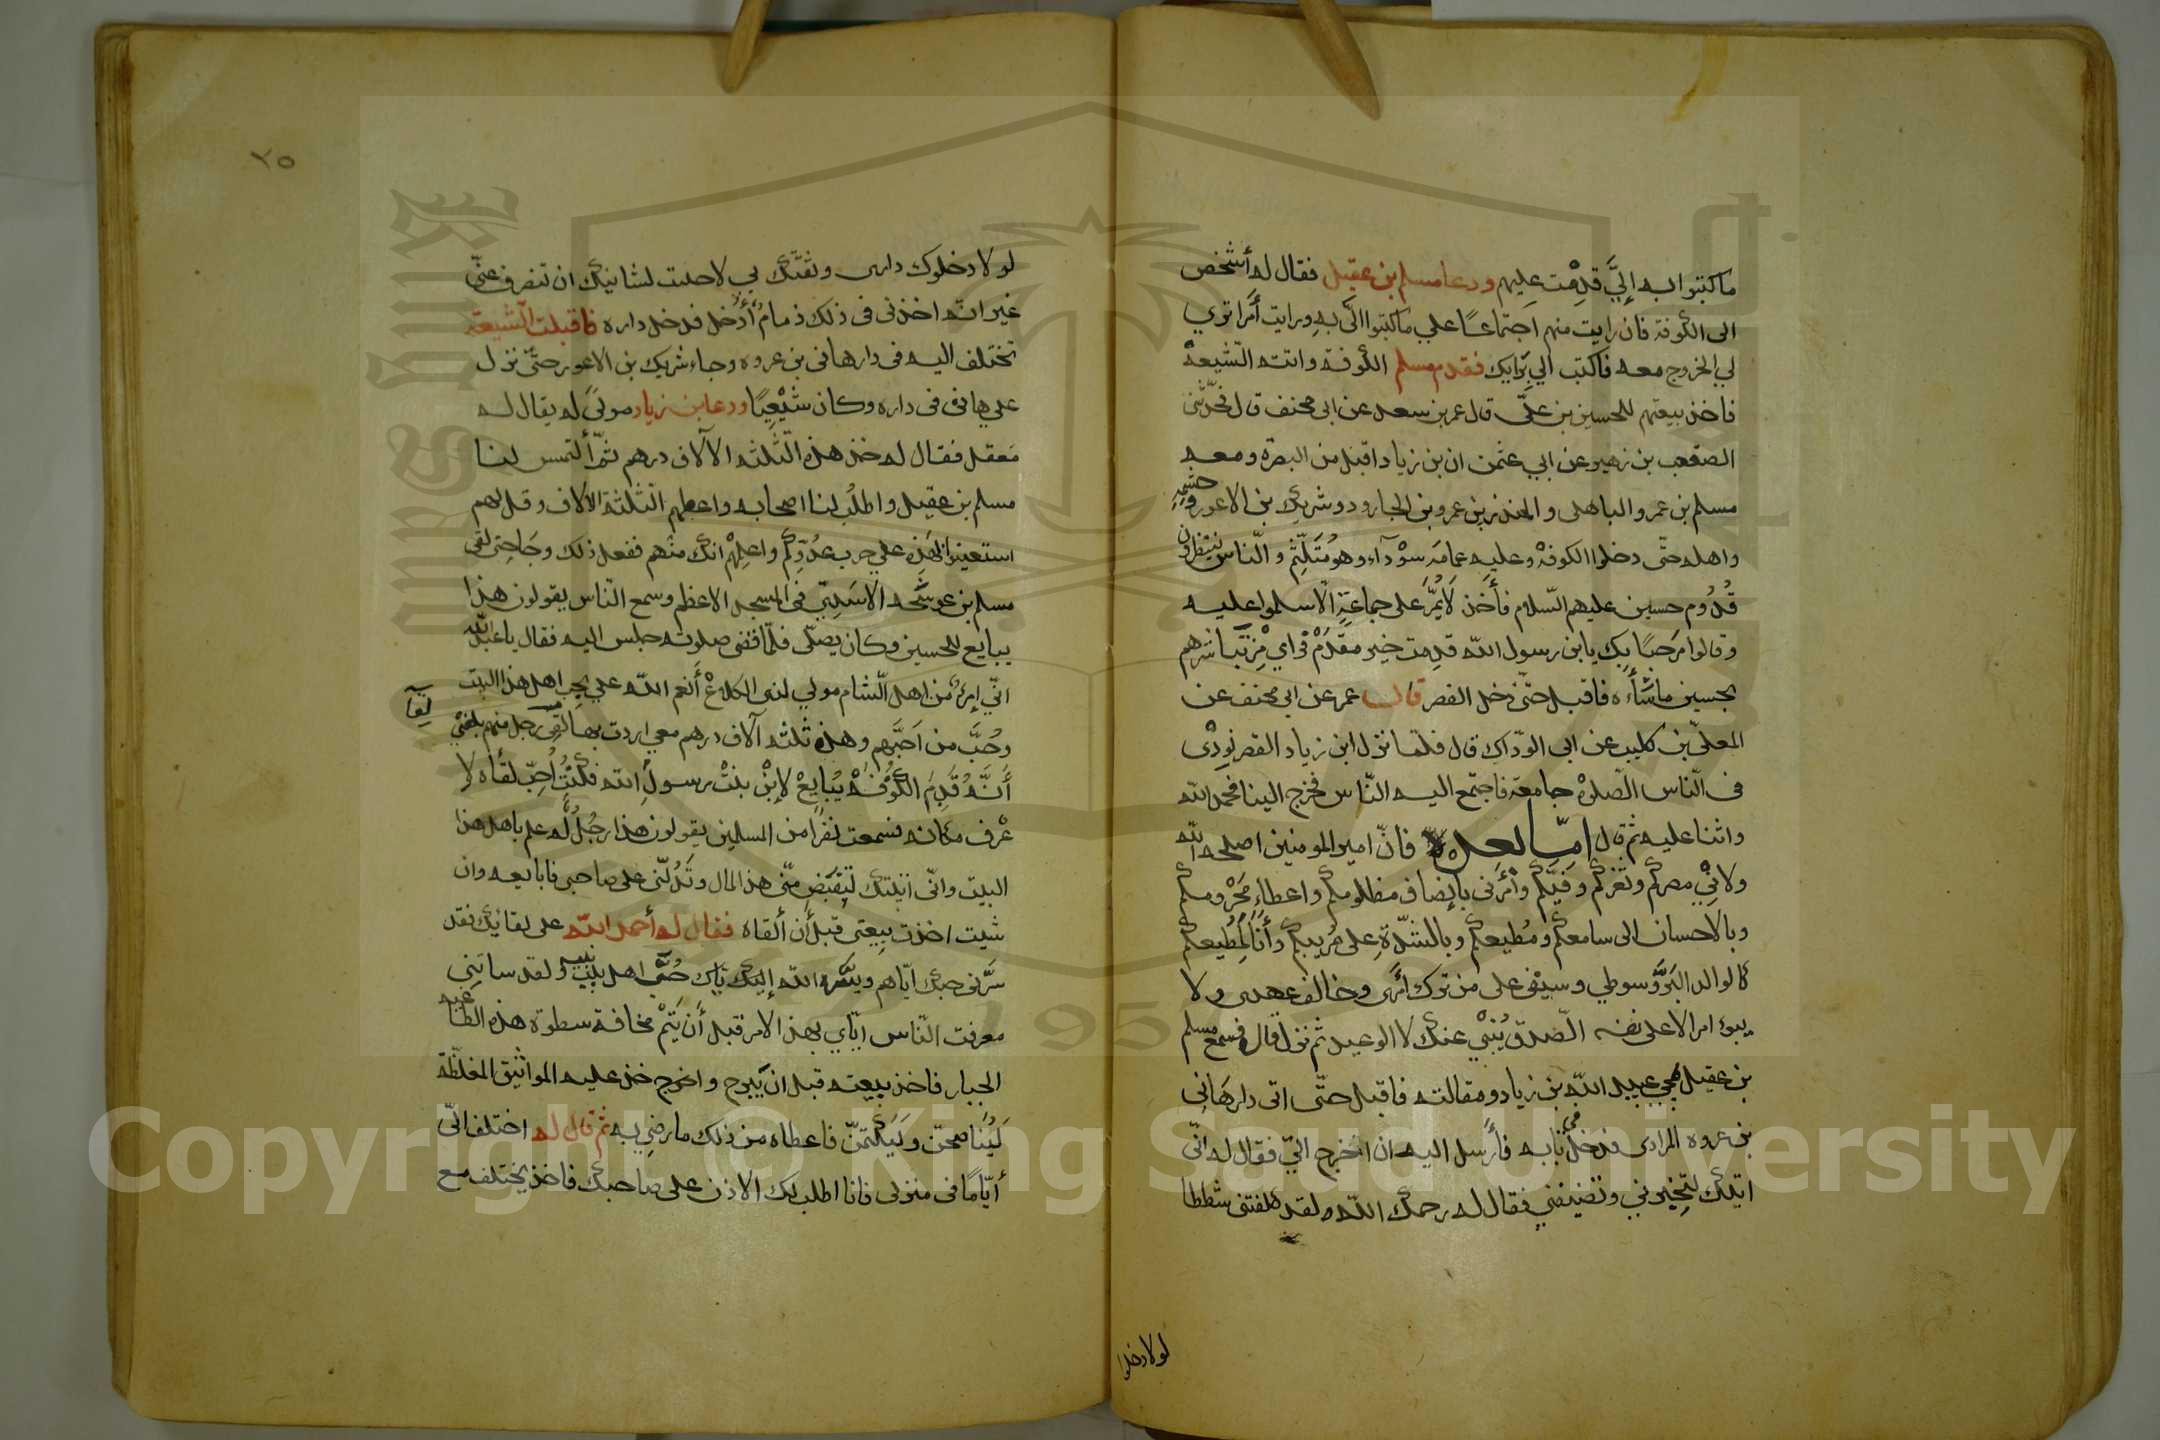 ما كتبتوا به إليَّ قدِمْت عليهم ودعا مسلم بن عقيل فقال له أشخص
الى الكوفة فان رايت منهم اجتماعًا علي ما كتبتوا اليَّ به ورايت أمرا تري
لي الخروج معه فاكتب الي برَايك فقدم مسلم الكوفة واتته الشيعة
فاخذ بيعتهم للحسين بن عليّ قال عمر بن سعد عن ابي مخنف قال فحدّثني
الصقعب بن زهير عن ابي عثمن ان بن زياد اقبل من البصرة ومعه
مسلم بن عمرو الباهلى والمنذر بن عمرو بن الجارود وشريك بن الاعور وحشمه
واهله حتّى دخلوا الكوفة وعليه عمامة سوْدآء وهو مُتَلَثِّم والنّاس ينتظرون
قُدُوم حسين عليهم السّلام فأخَذ لا يُمرّ على جماعةِ الا سلموا عليه
وقالوا مَرحبًا بِك يابن رسول الله قدِمت خير مقْدَمْ فراي مِن تباشرهم
بحسين ما شَأءه فاقبل حتّى دخل القصر قال عمر عن ابي مخنف عن
المعلّي بن كليب عن ابي الودّاك قال فلمّا نزل ابن زياد القصر نودْى
فى النّاس الصّلوة جامعة فاجتمع اليه النّاس فخرج الينا فحمد الله
واثنا عليه ثم قال امّا بعد فانّ امير المومنين اصلحه الله
ولانِيْ مصركم وثغركم وفيّكم وأمَرنى بإنصاف مظلومكم واعطاء محْرومكم
وبالاحسان الى سامعكم ومُطيعكم وبالشدّةِ على مُريبكم وأنَا لِمُطيعكم
كالوالد البَرّ وسوطي وسيفى على من ترك أمرى وخالف عهدى ولا
يبوء امرا الا على نفسه الصّدق يُنْبي عنك لا الوعيد ثم نزل قال فسمع مسلم
بن عقيل بمجي عبيد الله بن زياد ومقالته فاقبل حتّى اتى دار هَانِى
بن عروه المرادى فدخل فى بابه فأرسل اليه ان اخرج اليّ فقال له انّى
اتيتك لتجيرني وتضيفني فقال له رحمك الله ولقد كلفتنى شططا
لولا دخلو
٢٥
لولا دخلوك دارى وثقتك بي لاحببت لشانيك ان تنصرف عنّي
غير انّه اخذنى فى ذلك ذمامٌ أدُخل فدخل داره فاقبلت الشيعة
تختلف اليه فى دار هانى بن عروه وجاء شريك بن الاعور حتّى نزل
علي هانئ فى داره وكان شيْعِيًا ودعا بن زياد مولىً له يقال له
مَعقل فقال له خذ هذه الثلثه الآلاف درهم ثمّ ألتمس لنا
مسلم بن عقيل واطلُب لنا اصحابه واعطهم الثلثة الالاف وقل لهم
استعينوا بهَذِه علي حرب عدُوِّكم واعلِمْهم انك منْهم ففعل ذلك وجَا حتى لقى
مسلم بن عوسَجه الاسَدِيّ فى المسجد الاعظم وسمع النّاس يقولون هذا
يبايع للحسين وكان يصلّى فلمّا قضى صلوته جلس اليه فقال يا عبد الله
انّي إمرُءٌ من اهل الشام مولي لذى الكلاعْ أنعم الله علي بحب اهل هذا البيت
وحُبَّ من احَبَّهم وهذه ثلثه آلاف درهم معي اردت بها لقى رجل منهم بلغنيْ
لِقآ
أنَّه قَدِمَ الكوُفَهْ يُبايِعْ لإبْنْ بنتْ رسولِ الله فكنْتُ اُحِبّ لقَاه لا
عْرف مكانه فسمعت نفرًا من المسلمين يقولون هذا رجُلُ لُه علم باهل هذا
البيت وانّى اتيتك لتقبَضَ منّى هذ المال وتَدُلنّى على صاحبى فابايعه وان
شيت اخذت بيعتى قبل أن ألقاه فقال له أحمد الله على لقائيك فقد
سَرّنى حبك ايّاهم وينصره الله إليك بإك حُقّ اهل بيت نبيه ولقد ساتني
معرفت النّاس ايّاي بهذ الامر قبل أن يَتمْ مخافة سطوة هذه الطاغيه
الجبار فاخذ بيعته قبل ان يبرح واخرج خذ عليه المواثيق المغلّظة
لَيُناصحنّ ولَيَكْتمنّ فاعطاه من ذلك ما رضِي به ثم قال له اختلف اليّ
أيّامًا فى منزلى فانا اطلب لك الاذن على صاحبك فاخذ يختلف مع
Copyright © King Saud University
1957